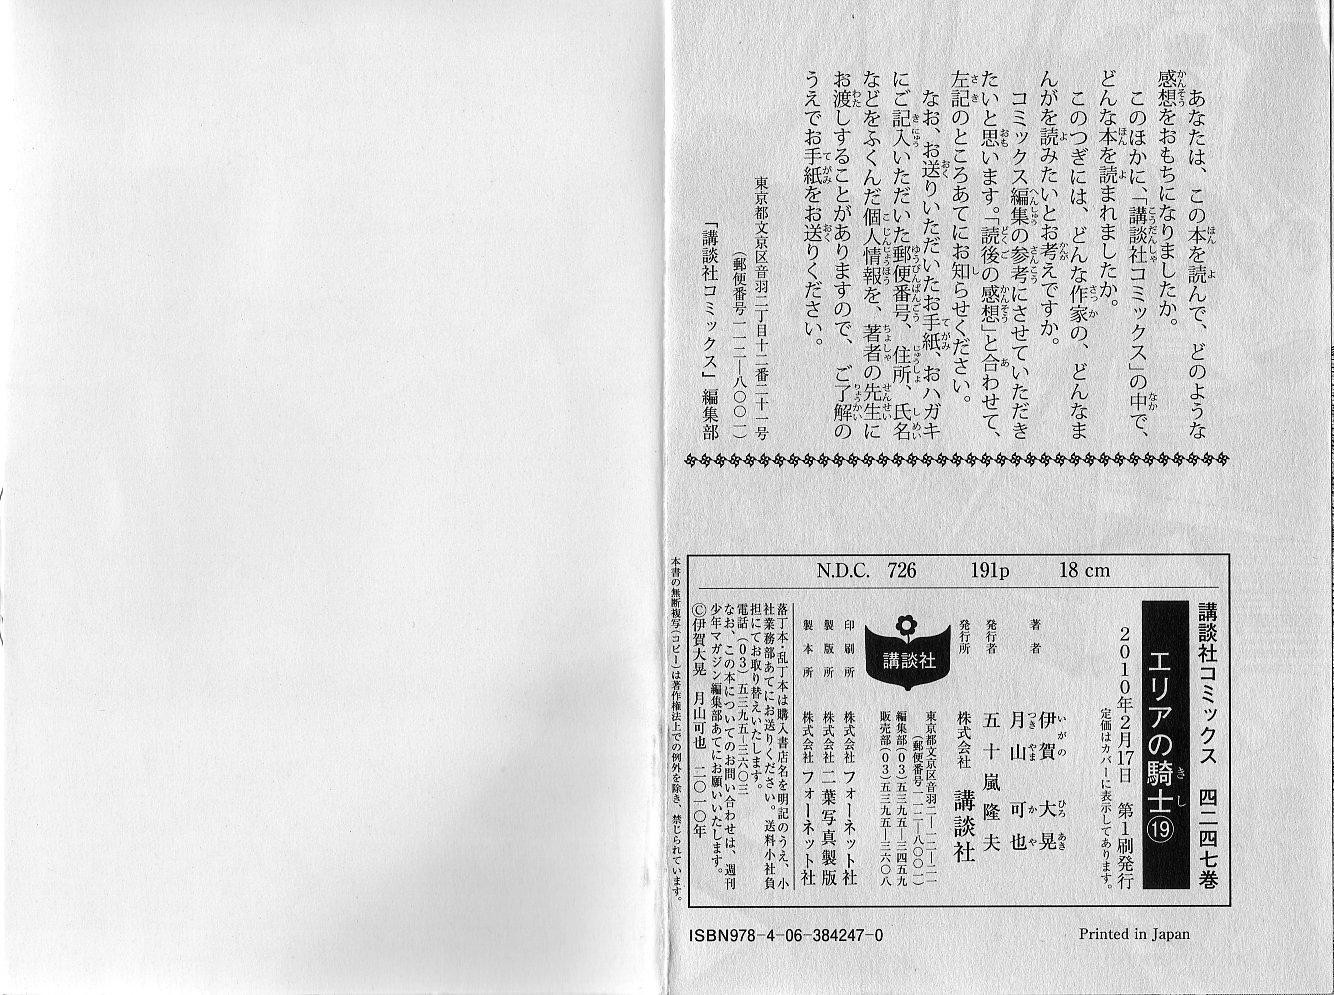 あなたは、この本を読んで、どのような
感想をおもちになりましたか。
このほかに、「講談社コミックス」の中で、
どんな本を読まれましたか。
このつぎには、どんな作家の、どんなま
んがを読みたいとお考えですか。
コミックス編集の参考にさせていただき
たいと思います。「読後の感想」と合わせて、
左記のところあてにお知らせください。
なお、お送りいただいたお手紙、おハガキ
にご記入いただいた郵便番号、住所、氏名
などをふくんだ個人情報を、著者の先生に
お渡しすることがありますので、ご了解の
うえでお手紙をお送りください。
東京都文京区音羽二丁目十二番二十一号
(郵便番号一一二―八〇〇一)
「講談社コミックス」編集部
N.D.C. 726 191p 18 cm
講談社コミックス 四二四七巻
エリアの騎士⑲
2010年2月17日 第1刷発行
定価はカバーに表示してあります。
著者 伊賀大晃
月山可也
発行者 五十嵐隆夫
発行所 株式会社 講談社
東京都文京区音羽二―一二―二一
(郵便番号一一二―八〇〇一)
編集部(03)五三九五―三四五九
販売部(03)五三九五―三六〇八
講談社
印刷所 株式会社 フォーネット社
製版所 株式会社 二葉写真製版
製本所 株式会社 フォーネット社
落丁本・乱丁本は購入書店名を明記のうえ、小
社業務部あてにお送りください。送料小社負
担にてお取り替えいたします。
電話(03)五三九五―三六〇三
なお、この本についてのお問い合わせは、週刊
少年マガジン編集部あてにお願いいたします。
Ⓒ伊賀大晃 月山可也 二〇一〇年
本書の無断複写(コピー)は著作権法上での例外を除き、禁じられています。
ISBN978-4-06-384247-0
Printed in Japan